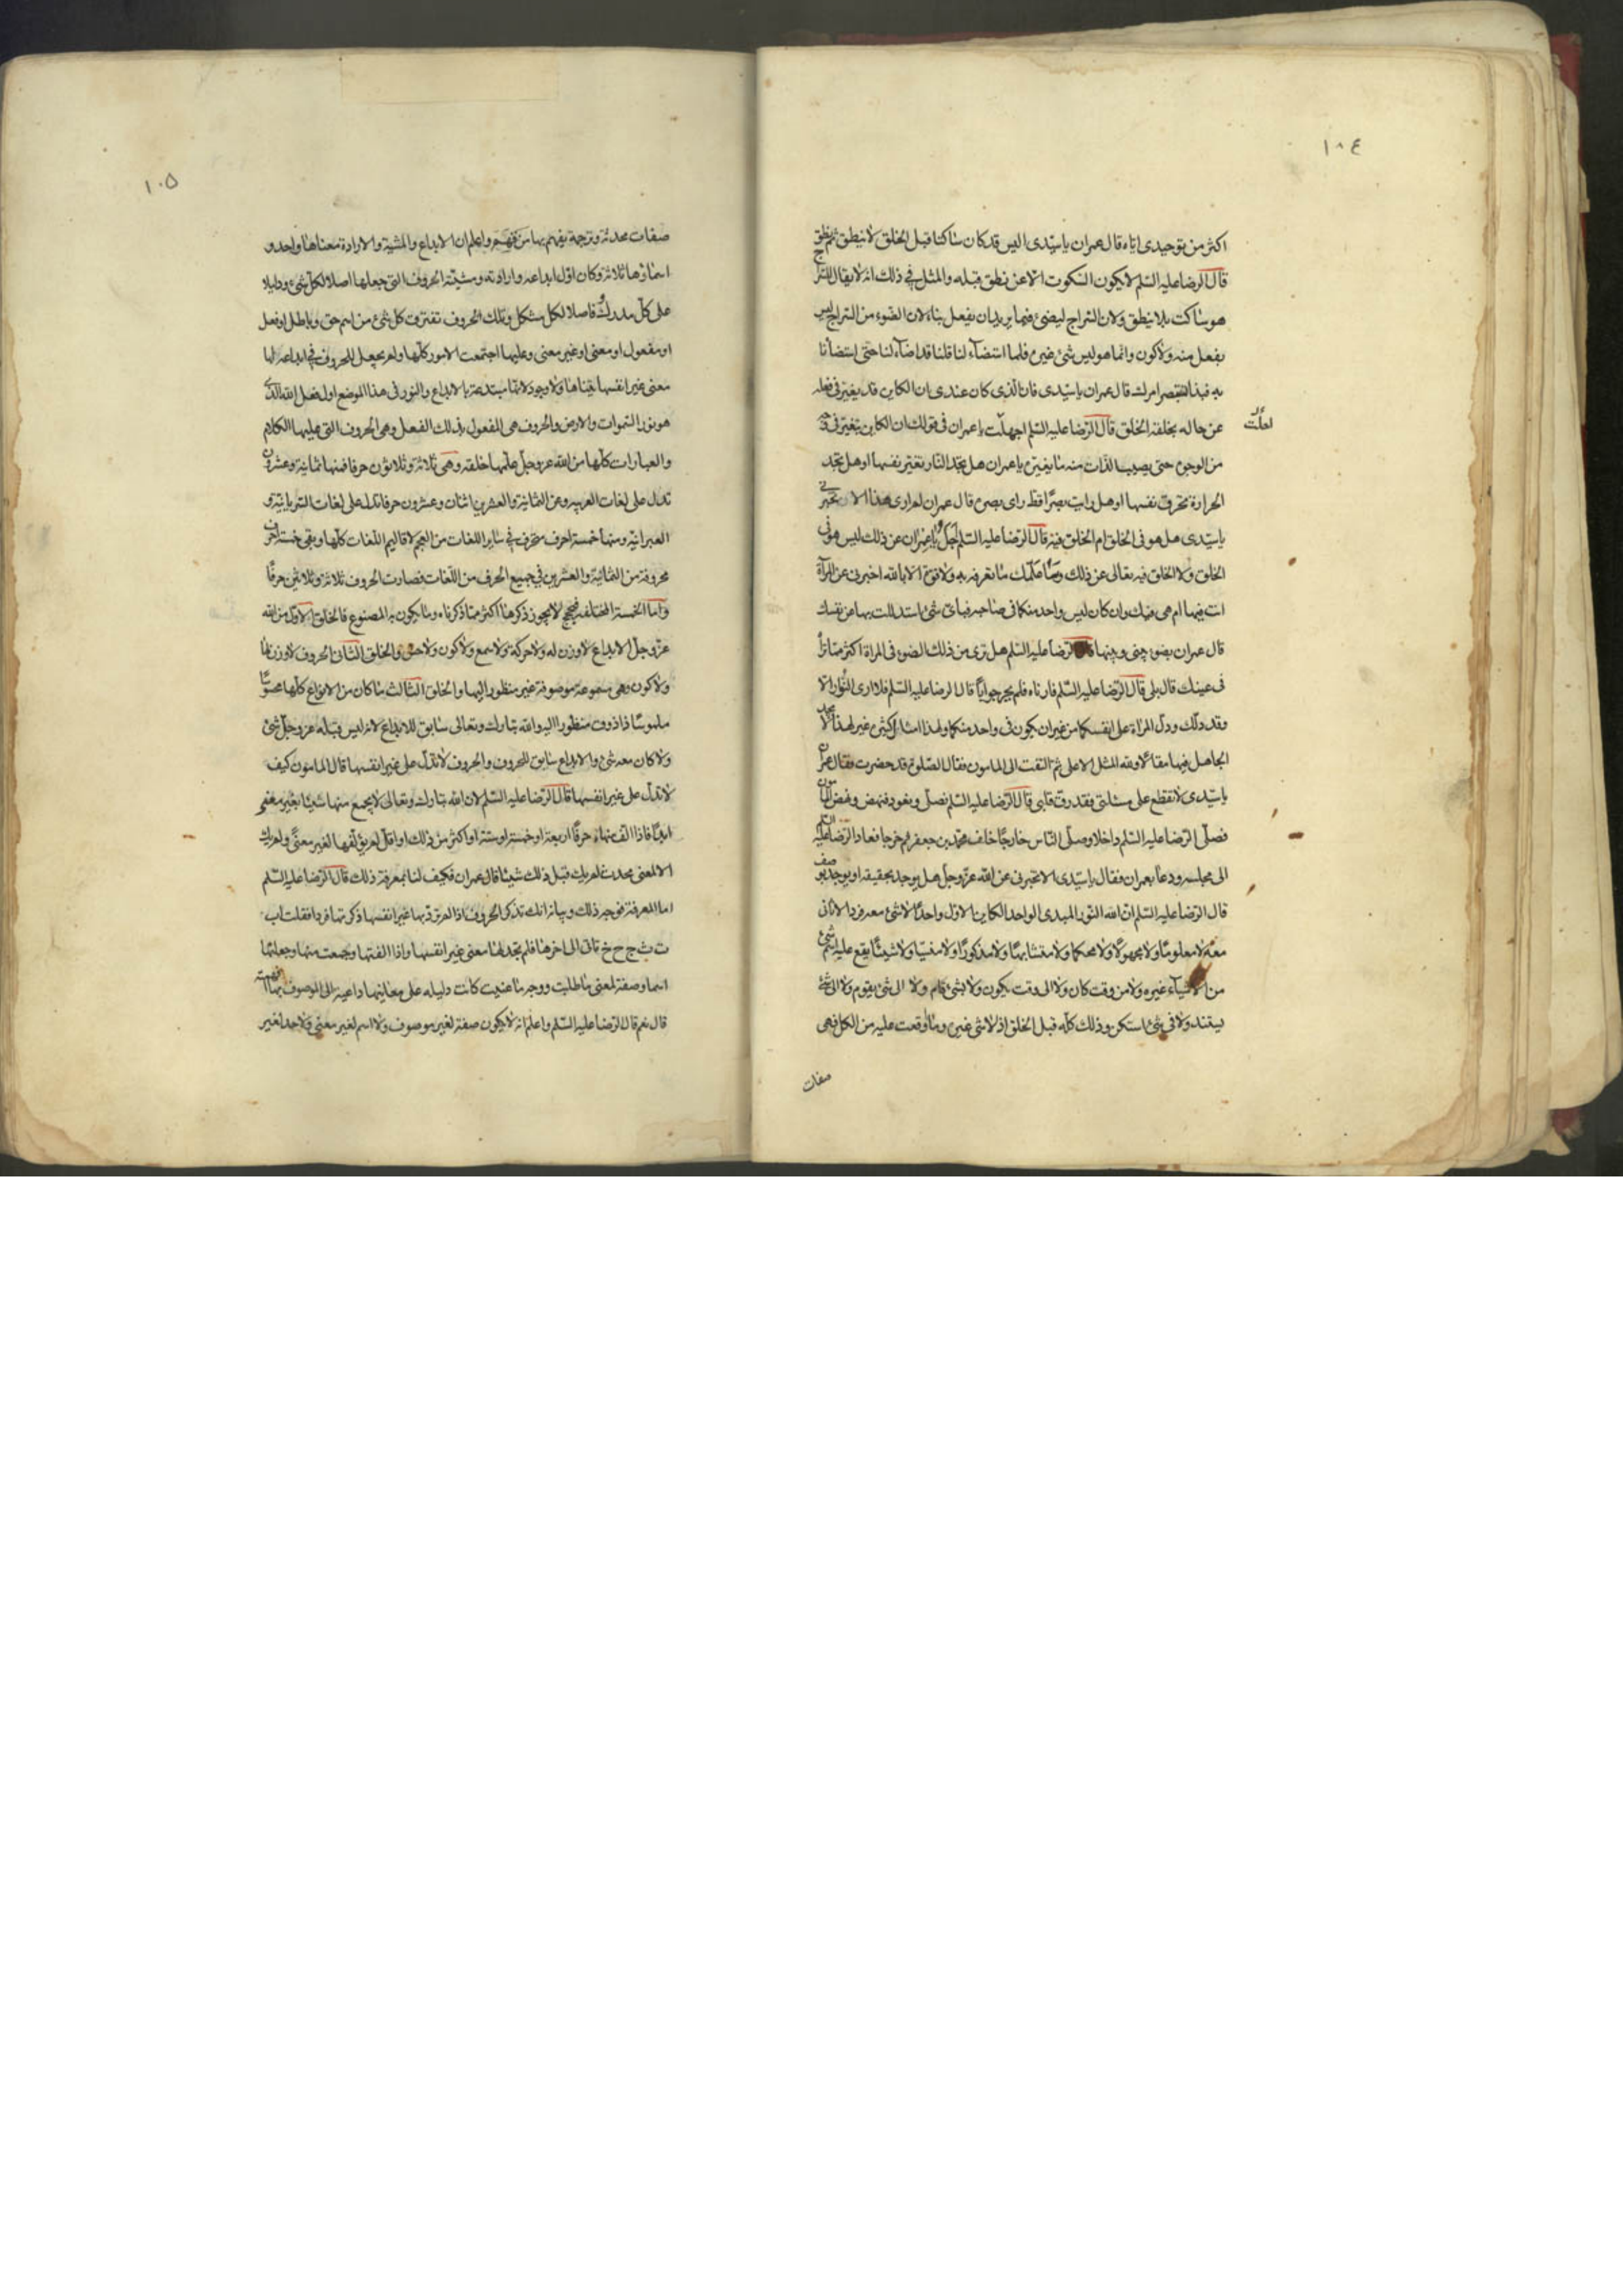 ١٠٤
اكثر من توحيدى اياه قال عمران يا سيدى اليس قد كان ساكتا قبل الخلق لا ينطق ثم نطق
قال الرضا عليه السلم لا يكون السكوت الا عن نطق قبله والمثل فى ذلك انه لا يقال للسراج
هو ساكت بلا ينطق ولا ان السراج ليضئ فيما يريد ان يفعل بنا لان الضوء من السراج ليس
بفعل منه ولا كون وانما هو ليس شئ غيره فلما استضاء لنا قلنا قد اضاء لنا حتى استضأنا
به فبهذا تستبصر امرك قال عمران يا سيدى فان الذى كان عندى ان الكاين قد يتغير فى فعله
عن حاله بخلقه الخلق قال الرضا عليه السلم اجهلت يا عمران فى قولك ان الكاين يتغير فى وجه
من الوجوه حتى يصيب الذات منه ما يغيره يا عمران هل تجد النار تغير نفسها او هل تجد
الحرارة تحرق نفسها او هل رايت بصرا قط راى بصره قال عمران لم ار هذا الا تخبرنى
يا سيدى هل هو فى الخلق ام الخلق فيه قال الرضا عليه السلم اجل يا عمران عن ذلك ليس هو فى
الخلق ولا الخلق فيه تعالى عن ذلك وساء علمك ما تعرفه به ولا قوة الا بالله اخبرنى عن المرآة
انت فيها ام هى فيك وان كان ليس واحد منكما فى صاحبه فباى شئ استدللت بها من نفسك
قال عمران بضوء بينى وبينها قال الرضا عليه السلم هل ترى من ذلك الضوء فى المراة اكثر مما تراه
فى عينك قال بلى قال الرضا عليه السلم فارناه فلم يحر جوابا قال الرضا عليه السلم فلا ارى النور الا
وقد دلك ودل المراة على انفسكما من غير ان يكون فى واحد منكما ولهذا امثال كثيرة غير هذا لا يجد
الجاهل فيها مقالا ولله المثل الاعلى ثم التفت الى المامون فقال الصلوة قد حضرت فقال عمران
يا سيدى لا تقطع على مسئلتى فقد رق قلبى قال الرضا عليه السلم نصلى ونعود فنهض ونهض المامون
فصلى الرضا عليه السلم داخلا وصلى الناس خارجا خلف محمد بن جعفر ثم خرجا فعاد الرضا عليه السلم
الى مجلسه ودعا بعمران فقال يا سيدى الا تخبرنى عن الله عز وجل هل يوجد بحقيقه او يوجد بوصف
قال الرضا عليه السلم ان الله النور المبدى الواحد الكاين الاول واحدا لا شئ معه فردا لا ثانى
معه لا معلوما ولا مجهولا ولا محكما ولا متشابها ولا مذكورا ولا منسيا ولا شيئا يقع عليه اسم شئ
من الاشياء غيره ولا من وقت كان ولا الى وقت يكون ولا بشئ قام ولا الى شئ يقوم ولا الى شئ
يستند ولا فى شئ استكن وذلك كله قبل الخلق اذ لا شئ غيره وما اوقعت عليه من الكل فهى
صفات
١٠٥
صفات محدثة وترجمة يفهم بها من فهم واعلم ان الابداع والمشية والارادة معناها واحد و
اسماؤها ثلاثة وكان اول ابداعه وارادته ومشيته الحروف التى جعلها اصلا لكل شئ ودليلا
على كل مدرك وفاصلا لكل مشكل وبتلك الحروف تفترق كل شئ من اسم حق وباطل او فعل
او مفعول او معنى او غير معنى وعليها اجتمعت الامور كلها ولم يجعل للحروف فى ابداعه لها
معنى غير انفسها يتناها ولا وجود لانها مبتدعة بالابداع والنور فى هذا الموضع اول فعل الله الذى
هو نور السموات والارض والحروف هى المفعول بذلك الفعل وهى الحروف التى عليها الكلام
والعبارات كلها من الله عز وجل علمها خلقه وهى ثلاثة وثلاثون حرفا فمنها ثمانية وعشرون
تدل على لغات العربيه ومن الثمانية والعشرين اثنان وعشرون حرفا تدل على لغات السريانية و
العبرانية ومنها خمسة احرف متحرف فى ساير اللغات من العجم لاقاليم اللغات كلها وبقى خمسة احرف
محروفة من الثمانية والعشرين فى جميع الحرف من اللغات فصارت الحروف ثلاثة وثلاثين حرفا
واما الخمسة المختلفة فبحجج لا يجوز ذكرها اكثر مما ذكرناه وما يكون به المصنوع فالخلق الاول من الله
عز وجل الابداع لا وزن له ولا حركة ولا سمع ولا كون ولا حس والخلق الثانى الحروف لا وزن لها
ولا كون وهى مسموعة موصوفة غير منظور اليها والخلق الثالث ما كان من الانواع كلها محسوسا
ملموسا ذا ذوق منظورا اليه والله تبارك وتعالى سابق للابداع لانه ليس قبله عز وجل شئ
ولا كان معه شئ والابداع سابق للحروف والحروف لا تدل على غير انفسها قال المامون كيف
لا تدل على غير انفسها قال الرضا عليه السلم لان الله تبارك وتعالى لا يجمع منها شيئا بغير معنى
ابدا فاذا الف منها حرفا اربعة او خمسة او ستة او اكثر من ذلك او اقل لم يؤلفها لغير معنى ولم يك
الا لمعنى محدث لم يك قبل ذلك شيئا قال عمران فكيف لنا بمعرفة ذلك قال الرضا عليه السلم
اما المعرفة فوجه ذلك وبيانه انك تذكر الحروف اذا لم ترد بها غير انفسها ذكرتها فردا فقلت ا ب
ت ث ج ح خ تاتى الى اخرها فلم تجد لها معنى غير انفسها واذا الفتها وجمعت منها وجعلتها
اسما وصفة لمعنى ما طلبت ووجه ما عنيت كانت دليله على معانيها داعية الى الموصوف بها افهمته
قال نعم قال الرضا عليه السلم واعلم انه لا يكون صفة لغير موصوف ولا اسم لغير معنى ولا حد لغير